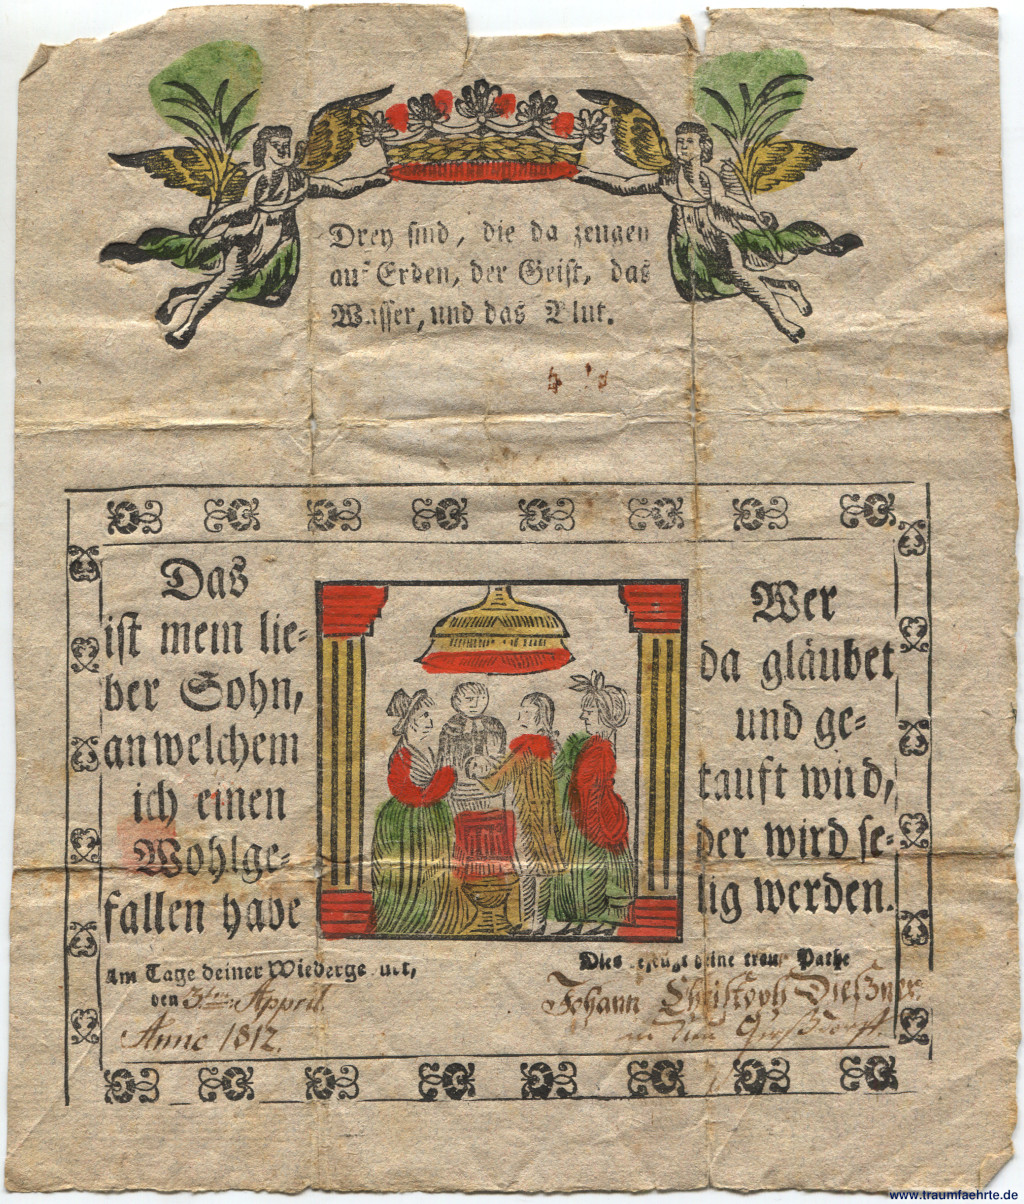 Drey sind, die da zeugen
auf Erden, der Geist, das
Wasser, und das Blut.
Das
ist mein lie=
ber Sohn,
an welchem
ich einen
Wohlge=
fallen habe
Wer
da gläubet
und ge=
tauft wird,
der wird se=
lig werden.
Am Tage deiner Wiedergeburt,
den 3ten Appril.
Anno 1812.
Dies bezeugt deine treue Pathe
Johann Christoph
www.traumfaehrte.de